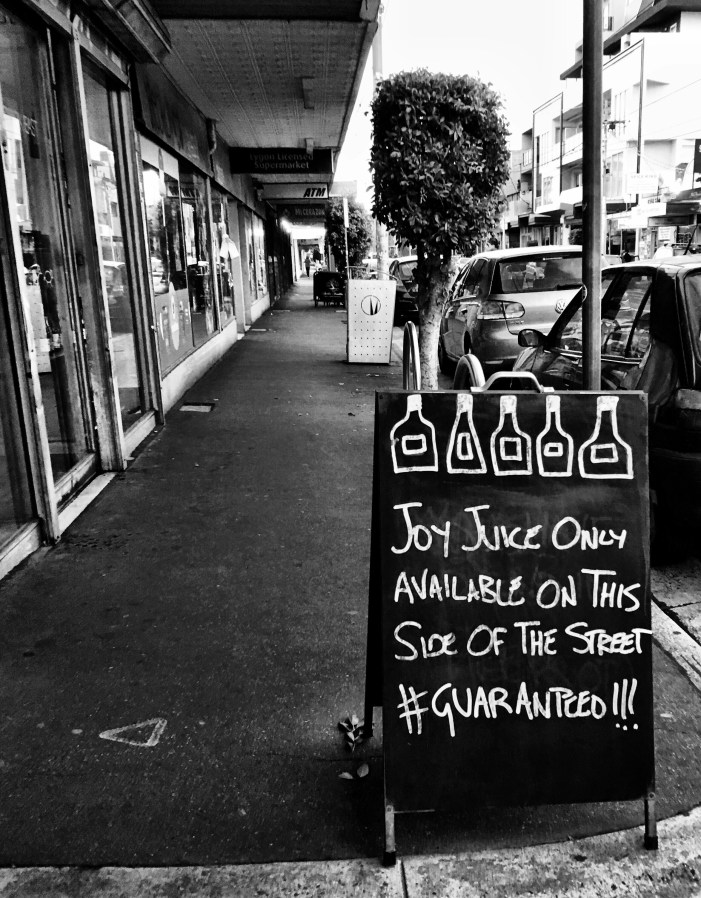 Lygon Licensed
Supermarket
ATM
JOY JUICE ONLY
AVAILABLE ON THIS
SIDE OF THE STREET
#GUARANTEED!!!